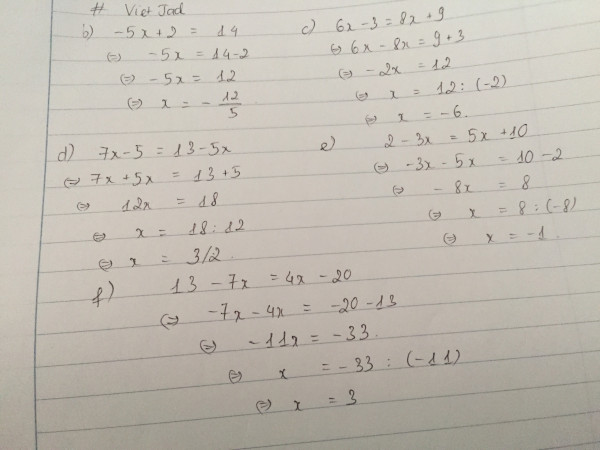 # Viet Jad
b) -5x + 2 = 14
(=) -5x = 14-2
(=) -5x = 12
(=) x = - 12/5
c) 6x - 3 = 8x + 9
(=) 6x - 8x = 9 + 3
(=) -2x = 12
(=) x = 12 : (-2)
(=) x = -6.
d) 7x - 5 = 13 - 5x
(=) 7x + 5x = 13 + 5
(=) 12x = 18
(=) x = 18 : 12
(=) x = 3/2.
e) 2 - 3x = 5x + 10
(=) -3x - 5x = 10 - 2
(=) - 8x = 8
(=) x = 8 : (-8)
(=) x = -1.
f) 13 - 7x = 4x - 20
(=) -7x - 4x = -20 - 13
(=) -11x = -33.
(=) x = -33 : (-11)
(=) x = 3